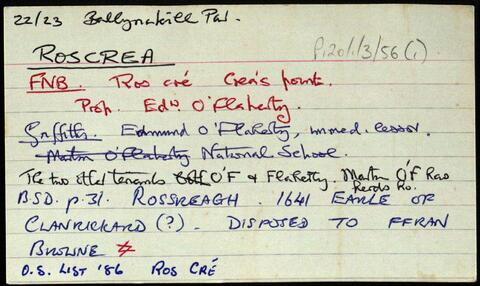 22/23 Ballynakill Par.
ROSCREA
P120/1/3/56(i)
FNB. Ros cré Crea's point.
Prop. Edw. O'Flaherty.
Griffith. Edmund O'Flaherty, immed. lessor.
Martin O'Flaherty National School.
The two other tenants both O'F & Flaherty. Martin O'F Rao
Records Ro.
B.S.D. p.31. ROSSREAGH. 1641 EARLE OF
CLANRICKARD (?). DISPOSED TO FFRAN
BROWNE
O.S. LIST '86 ROS CRÉ